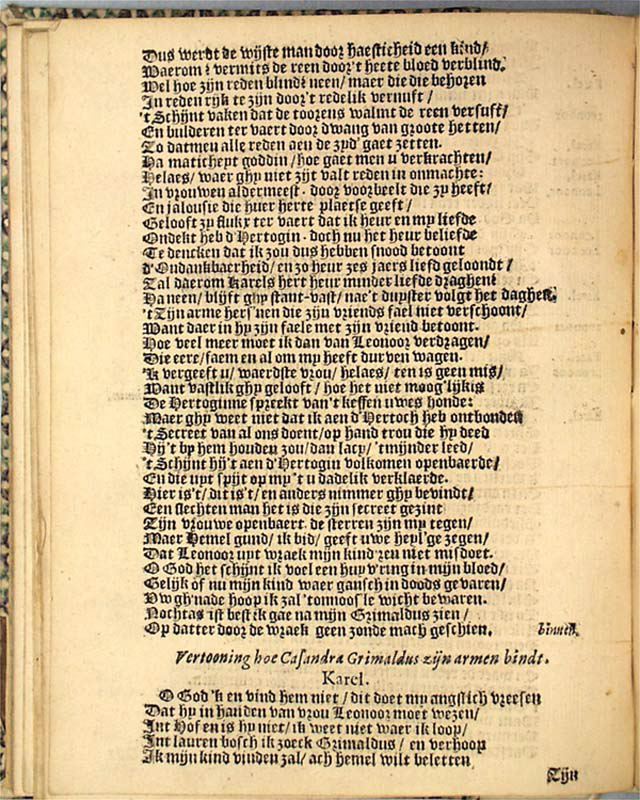 Dus werdt de wijste man door haesticheid een kind/
Waerom? vermits de reen door't heete bloed verblind.
Wel hoe zijn reden blind? neen/ maer die die behoren
In reden ryk te zijn door't redelik vernuft/
't Schijnt vaken dat de toorens walmt de reen versuft/
En bulderen ter vaert door dwang van groote hetten/
Zo datmen alle reden aen de zyd' gaet zetten.
Ha maticheyt goddin/ hoe gaet men u verkrachten/
Helaes/ waer ghy niet zijt valt reden in onmachte:
In vrouwen aldermeest. door voorbeelt die zy heeft/
En jalousie die huer herte plaetse geeft/
Gelooft zy flukx ter vaert dat ik heur en my liefde
Ondekt heb d'Hertogin. doch nu het heur beliefde
Te dencken dat ik zou dus hebben snood betoont
d'Ondankbaerheid/ en zo heur zes jaers liefd geloondt/
Zal daerom Karels hert heur minder liefde draghen?
Ha neen/ blijft ghy stant-vast/ nae't duyster volgt het daghen.
't Zijn arme hers'nen die zijn vriends fael niet verschoont/
Want daer in hy zijn faele met zijn vriend betoont.
Hoe veel meer moet ik dan van Leonoor verdragen/
Die eere/ faem en al om my heeft durven wagen.
'K vergeeft u/ waerdste vrou/ helaes/ ten is geen mis/
Want vastlik ghy gelooft/ hoe het niet moog'lijk is
De Hertoginne spreekt van't keffen uwes honde:
Maer ghy weet niet dat ik aen d'Hertoch heb ontbonden
't Secreet van al ons doent/ op hand trou die hy deed
Hy't by hem houden zou/ dan lacy/ 'tmijnder leed/
't Schijnt hy't aen d'Hertogin volkomen openbaerde/
En die uyt spijt op my 't u dadelik verklaerde.
Hier is't/ dit is't/ en anders nimmer ghy bevindt/
Een slechten man het is die zijn secreet gezint
Zijn vrouwe openbaert. de sterren zijn my tegen/
Maer Hemel gund/ ik bid/ geeft uwe heyl'ge zegen/
Dat Leonoor uyt wraek mijn kind'ren niet misdoet.
O God het schijnt ik voel een huyv'ring in mijn bloed/
Gelijk of nu mijn kind waer gansch in doods gevaren/
Uw gh'nade hoop ik zal 'tonnoos'le wicht bewaren.
Nochtas ist best ik gae na mijn Grimaldus zien/
Op datter door de wraek geen zonde mach geschien. binnen.
Vertooning hoe Casandra Grimaldus zijn armen bindt.
Karel.
O God 'k en vind hem niet/ dit doet my angstich vreesen
Dat hy in handen van vrou Leonoor moet wezen/
Int Hof en is hy niet/ ik weet niet waer ik loop/
Int lauren bosch ik zoeck Grimaldus/ en verhoop
Ik mijn kind vinden zal/ ach hemel wilt beletten
Zijn